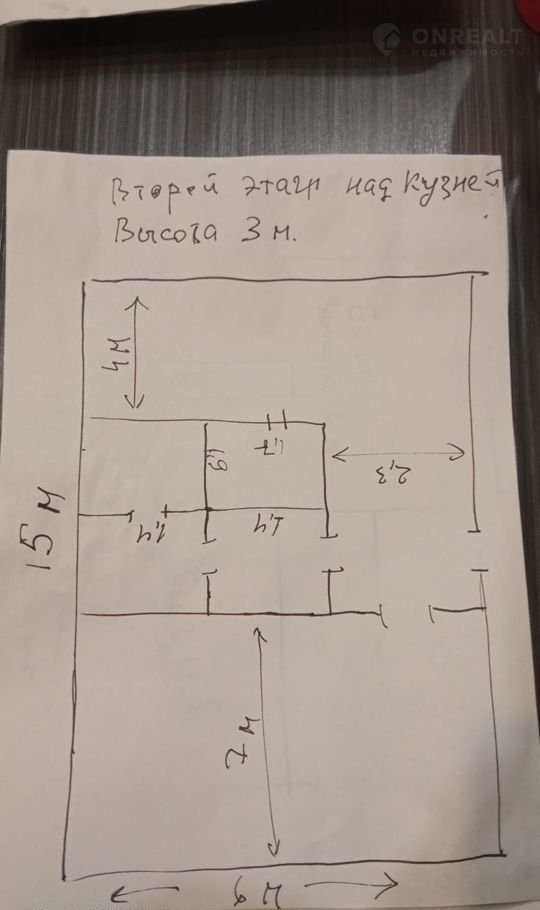 ONREALT
НЕДВИЖИМОСТЬ
Второй этаж над Кузней
Высота 3 м.
4 м
1,7
1,9
2,3
1,4
1,4
15 м
7 м
6 м